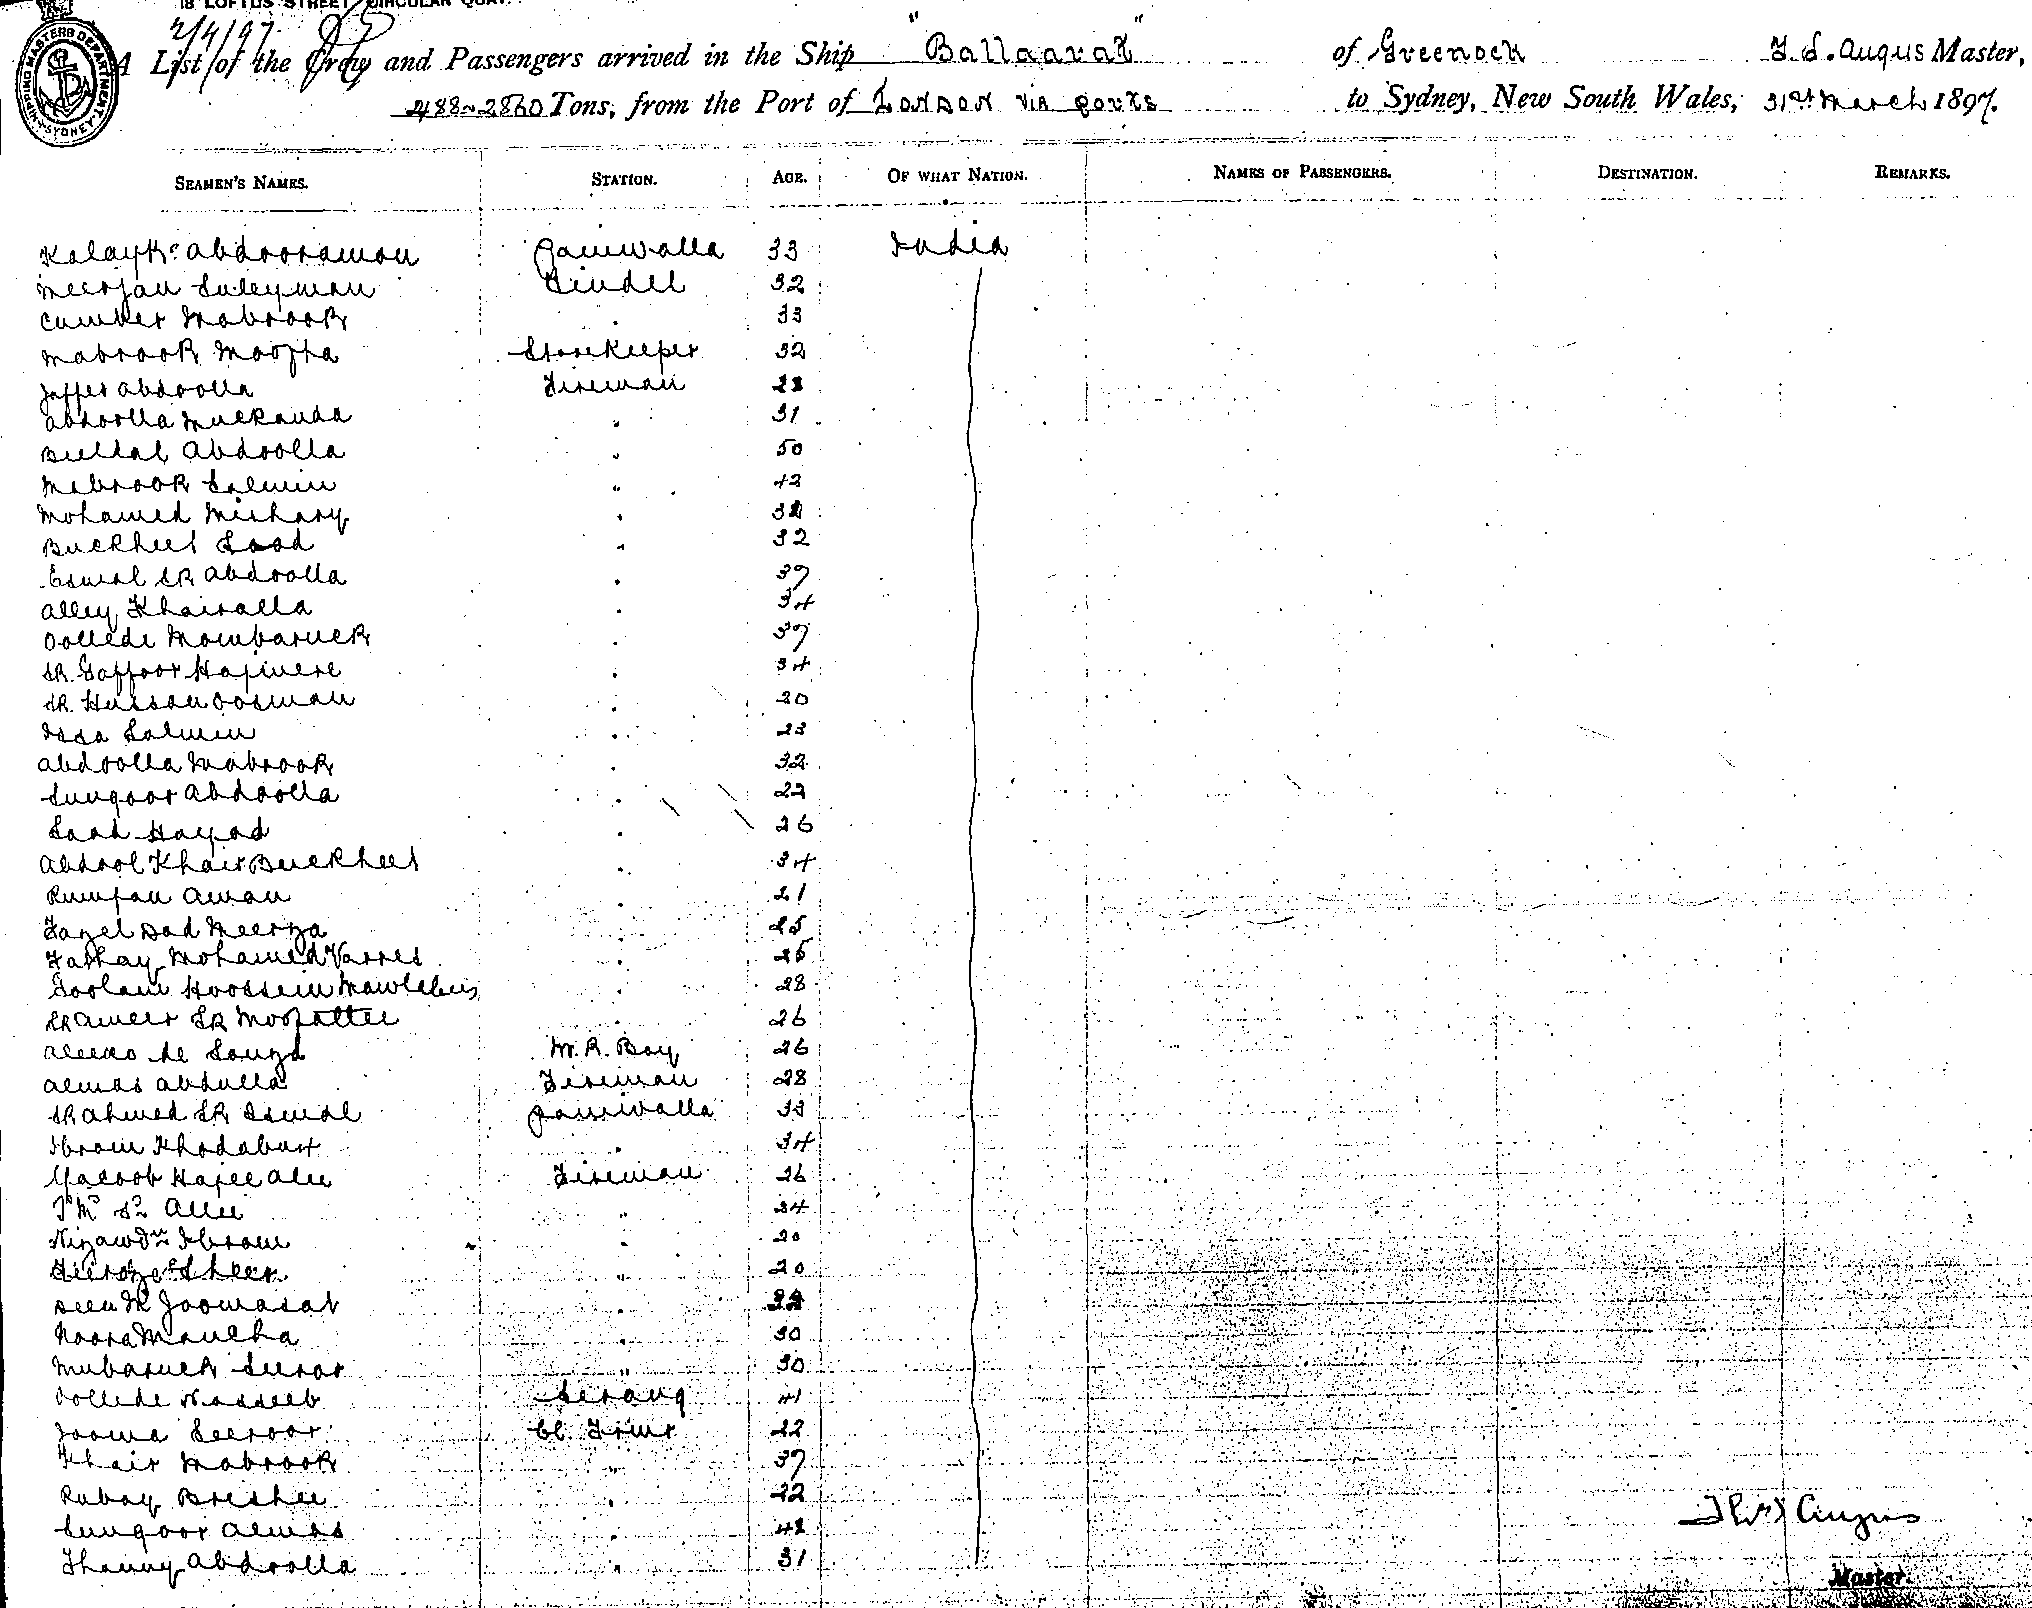 18 LOFTUS STREET, CIRCULAR QUAY.
2/4/97
SHIPPING MASTERS DEPARTMENT, SYDNEY, N.S.W.
A List of the Crew and Passengers arrived in the Ship "Ballaarat" of Greenock Master,
Tons, from the Port of London via ports to Sydney, New South Wales, 31st March 1897.
SEAMEN'S NAMES. STATION. AGE. OF WHAT NATION. NAMES OF PASSENGERS. DESTINATION. REMARKS.
Abdooraman 33 India
Meerjan Suleyman Tindel 32
Cumber Mabrook 33
Mabrook Moofta Storekeeper 32
Jaffer Abdoolla Fireman
Abdoolla Muckanda " 31
Bullal Abdoolla " 50
Mabrook Salmin " 42
Mohamed Mishary "
Buckheet Saad " 32
Esmal SK Abdoolla " 37
Alley Khairalla " 34
Oollede Mombaruck " 37
SK. Gaffoor Hajivere " 34
SK. Hussan Oosman " 20
Issa Salmin " 23
Abdoolla Mabrook " 32
Sungoor Abdoolla " 22
Saad Hayad " 26
Abdool Khair Buckheet " 34
Rumjan Aman " 21
Fazel Dad Meerza " 25
Mohamed "
Goolam Hoossein " 28
SK Ameer SK " 26
de Souza M. R. Boy 26
Almas Abdulla Fireman 28
SK Ahmed SK Ismal 33
Ibram Khodabux " 34
Yacoob Hajee Alee Fireman 26
Allee " 24
Ibram " 20
Sheer " 20
Joomasab "
Noora Maucha " 30
Mubaruck Suror " 30
Oollede Nasseeb Serang 41
Jooma Seeroor 22
Khair Mabrook " 37
Rubay " 22
Sungoor Almas "
Abdoolla " 31
Angus
Master.